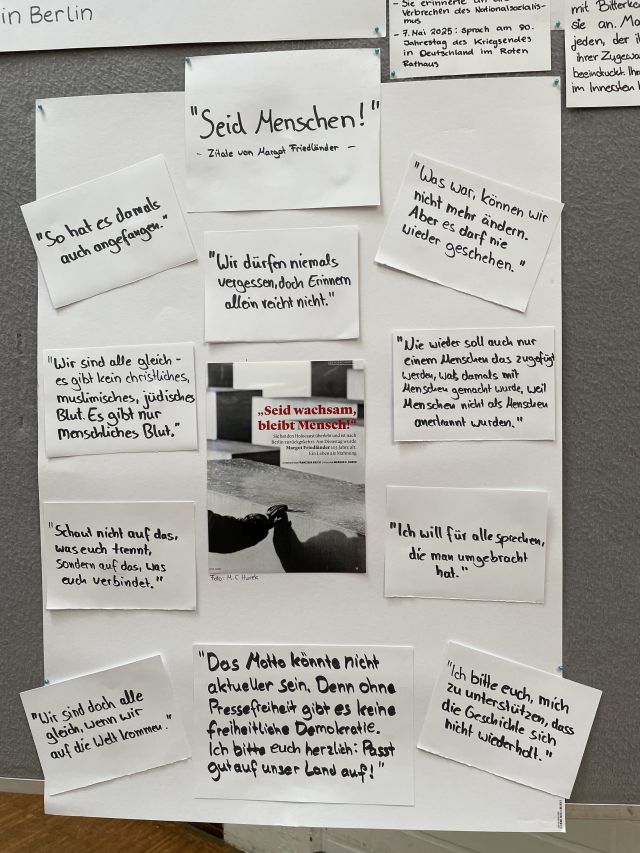 in Berlin
- Sie erinnerte an
Verbrechen des Nationalsozialis-
mus
- 7. Mai 2025: Sprach am 80.
Jahrestag des Kriegsendes
in Deutschland im Roten
Rathaus
mit Bitterke
sie an.
jeden, der ih
ihrer
beeindruckt. Ihr
im Innersten
"Seid Menschen!"
- Zitate von Margot Friedländer -
"So hat es damals
auch angefangen."
"Was war, können wir
nicht mehr ändern.
Aber es darf nie
wieder geschehen."
"Wir dürfen niemals
vergessen, doch Erinnern
allein reicht nicht."
"Wir sind alle gleich -
es gibt kein christliches,
muslimisches, jüdisches
Blut. Es gibt nur
menschliches Blut."
"Nie wieder soll auch nur
einem Menschen das zugefügt
werden, was damals mit
Menschen gemacht wurde, weil
Menschen nicht als Menschen
anerkannt wurden."
„Seid wachsam,
bleibt Mensch!“
Sie hat den Holocaust überlebt und ist nach
Berlin zurückgekehrt. Am Dienstag wurde
Margot Friedländer 103 Jahre alt.
Ein Leben als Mahnung
Foto: M. C Hurek
"Schaut nicht auf das,
was euch trennt,
sondern auf das, was
euch verbindet."
"Ich will für alle sprechen,
die man umgebracht
hat."
"Wir sind doch alle
gleich, wenn wir
auf die Welt kommen."
"Das Motto könnte nicht
aktueller sein. Denn ohne
Pressefreiheit gibt es keine
freiheitliche Demokratie.
Ich bitte euch herzlich: Passt
gut auf unser Land auf!"
"Ich bitte euch, mich
zu unterstützen, dass
die Geschichte sich
nicht wiederholt."